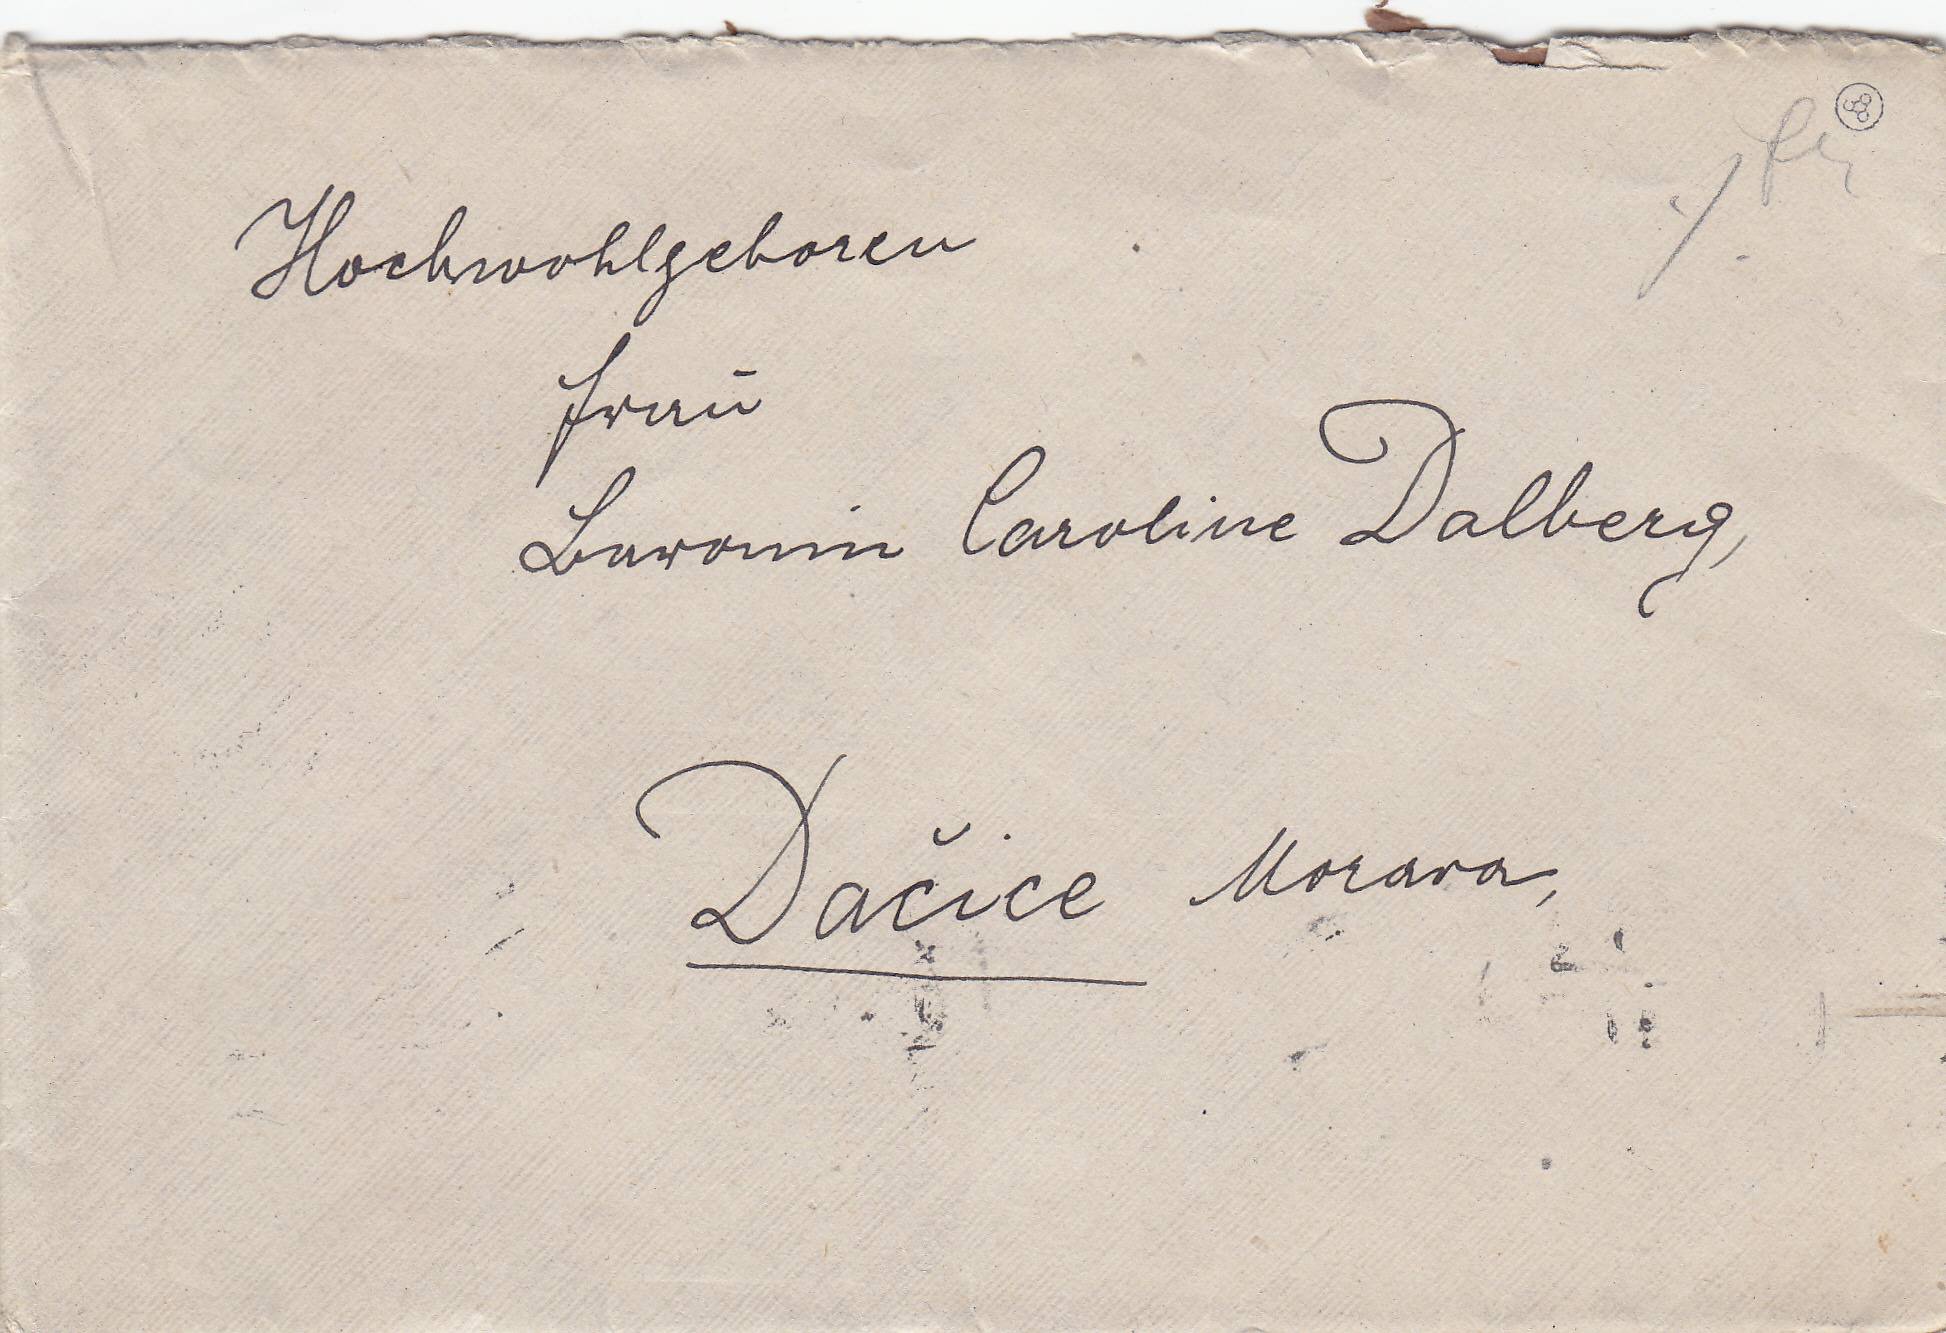 Hochwohlgeboren
Frau
Baronin Caroline Dalberg,
Dačice Morava,